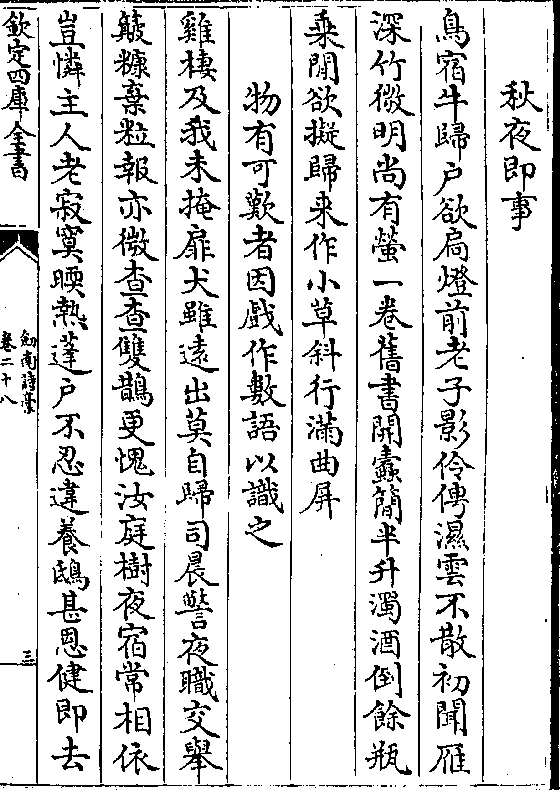 秋夜即事
鳥宿牛歸户欲扃燈前老子影伶俜濕雲不散初聞雁
深竹微明尚有螢一卷舊書開蠹簡半升濁酒倒餘瓶
乘閒欲擬歸来作小草斜行滿曲屏
物有可歎者因戲作數語以識之
雞棲及我未掩扉犬雖遠出莫自歸司晨警夜職交舉
皷糠棄粒報亦微查查雙鵲更愧汝庭樹夜宿常相依
豈憐主人老寂寞暖熱蓬户不忍違養鴟甚恩健即去
欽定四庫全書
劒南詩藁
卷二十八
三